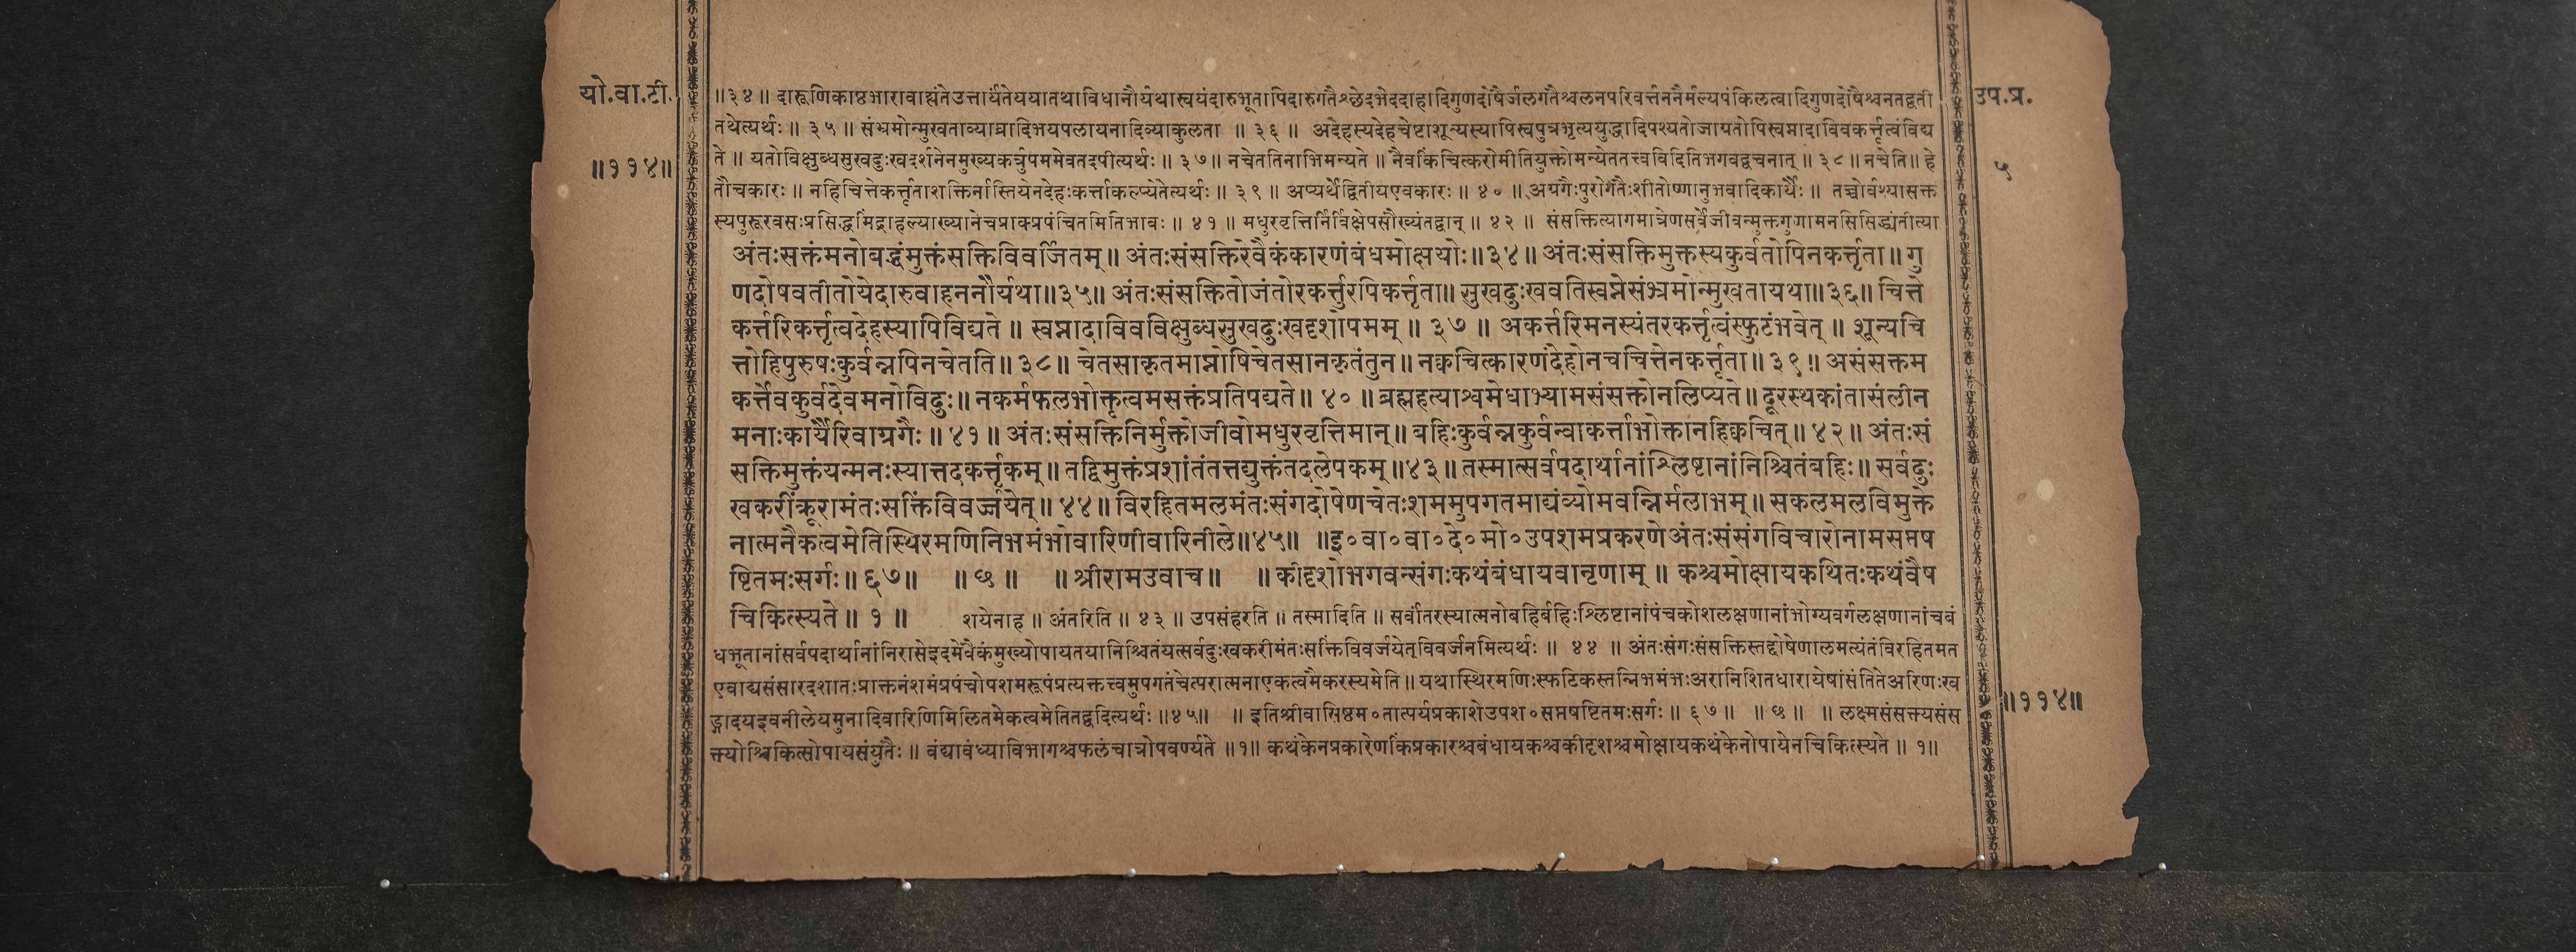 यो.वा.टी.
॥११४॥
॥३४॥ दारूणिकाष्ठभारावाह्यंतेउत्तार्यंतेययातथाविधानौर्यथास्वयंदारुभूतापिदारुगतैश्छेदभेददाहादिगुणदोषैर्जलगतैश्चलनपरिवर्त्तननैर्मल्यपंकिलत्वादिगुणदोषैश्चनतद्वती
तथेत्यर्थः॥ ३५॥ संभ्रमोन्मुखताव्याघ्रादिभयपलायनादिव्याकुलता ॥ ३६॥ अदेहस्यदेहचेष्टाशून्यस्यापिस्वपुत्रभृत्ययुद्धादिपश्यतोजायतोपिस्वप्नादाविवकर्त्तृत्वंविद्य
ते॥ यतोविक्षुब्धसुखदुःखदर्शनेनमुख्यकर्त्रुपममेवतदपीत्यर्थः॥ ३७॥ नचेततिनाभिमन्यते॥ नैवकिंचित्करोमीतियुक्तोमन्येततत्त्वविदितिभगवद्वचनात्॥ ३८॥ नचेति॥ हे
तौचकारः॥ नहिचित्तेकर्त्तृताशक्तिर्नास्तियेनदेहःकर्त्ताकल्प्येतेत्यर्थः॥ ३९॥ अप्यर्थेद्वितीयएवकारः॥ ४०॥ अग्रगैःपुरोगतैःशीतोष्णानुभवादिकार्यैः॥ तच्चोर्वश्यासक्त
स्यपुरूरवसःप्रसिद्धमिंद्राहल्याख्यानेचप्राक्प्रपंचितमितिभावः॥ ४१॥ मधुरवृत्तिर्निर्विक्षेपसौख्यंतद्वान्॥ ४२॥ संसक्तित्यागमात्रेणसर्वेजीवन्मुक्तगुणामनसिसिद्ध्यंतीत्या
अंतःसक्तंमनोबद्धंमुक्तंसक्तिविवर्जितम्॥ अंतःसंसक्तिरेवैकंकारणंबंधमोक्षयोः॥३४॥ अंतःसंसक्तिमुक्तस्यकुर्वतोपिनकर्त्तृता॥ गु
णदोषवतीतोयेदारुवाहननौर्यथा॥३५॥ अंतःसंसक्तितोजंतोरकर्त्तुरपिकर्त्तृता॥ सुखदुःखवतिस्वप्नेसंभ्रमोन्मुखतायथा॥३६॥ चित्ते
कर्त्तरिकर्त्तृत्वदेहस्यापिविद्यते॥ स्वप्नादाविवविक्षुब्धसुखदुःखदृशोपमम्॥ ३७॥ अकर्त्तरिमनस्यंतरकर्त्तृत्वंस्फुटंभवेत्॥ शून्यचि
त्तोहिपुरुषःकुर्वन्नपिनचेतति॥ ३८॥ चेतसाकृतमाप्नोषिचेतसानकृतंतुन॥ नक्वचित्कारणंदेहोनचचित्तेनकर्त्तृता॥ ३९॥ असंसक्तम
कर्त्तेवकुर्वदेवमनोविदुः॥ नकर्मफलभोक्तृत्वमसक्तंप्रतिपद्यते॥ ४०॥ ब्रह्महत्याश्वमेधाभ्यामसंसक्तोनलिप्यते॥ दूरस्थकांतासंलीन
मनाःकार्यैरिवाग्रगैः॥ ४१॥ अंतःसंसक्तिनिर्मुक्तोजीवोमधुरवृत्तिमान्॥ बहिःकुर्वन्नकुर्वन्वाकर्त्ताभोक्तानहिक्वचित्॥ ४२॥ अंतःसं
सक्तिमुक्तंयन्मनःस्यात्तदकर्त्तृकम्॥ तद्विमुक्तंप्रशांतंतत्तद्युक्तंतदलेपकम्॥४३॥ तस्मात्सर्वपदार्थानांश्लिष्टानांनिश्चितंबहिः॥ सर्वदुः
खकरींक्रूरामंतःसक्तिंविवर्ज्जयेत्॥ ४४॥ विरहितमलमंतःसंगदोषेणचेतःशममुपगतमाद्यंव्योमवन्निर्मलाभम्॥ सकलमलविमुक्ते
नात्मनैकत्वमेतिस्थिरमणिनिभमंभोवारिणीवारिनीले॥४५॥ ॥इ०वा०वा०दे०मो०उपशमप्रकरणेअंतःसंसंगविचारोनामसप्तष
ष्टितमःसर्गः॥ ६७॥ ॥ छ ॥ ॥ श्रीरामउवाच॥ ॥ कीदृशोभगवन्संगःकथंबंधायवानृणाम्॥ कश्चमोक्षायकथितःकथंवैष
चिकित्स्यते॥ १॥
शयेनाह॥ अंतरिति॥ ४३॥ उपसंहरति॥ तस्मादिति॥ सर्वांतरस्यात्मनोबहिर्बहिःश्लिष्टानांपंचकोशलक्षणानांभोग्यवर्गलक्षणानांचबं
धभूतानांसर्वपदार्थानांनिरासेइदमेवैकंमुख्योपायतयानिश्चितंयत्सर्वदुःखकरीमंतःसक्तिंविवर्जयेत्विवर्जनमित्यर्थः॥ ४४॥ अंतःसंगःसंसक्तिस्तद्दोषेणालमत्यंतंविरहितमत
एवाद्यसंसारदशातःप्राक्तनंशमंप्रपंचोपशमरूपंप्रत्यक्तत्त्वमुपगतंचेत्परात्मनाएकत्वमैकरस्यमेति॥ यथास्थिरमणिःस्फटिकस्तन्निभमंभःअरानिशितधारायेषांसंतितेअरिणःख
ड्गादयइवनीलेयमुनादिवारिणिमिलितमेकत्वमेतितद्वदित्यर्थः॥४५॥ ॥ इतिश्रीवासिष्ठम०तात्पर्यप्रकाशेउपश०सप्तषष्टितमःसर्गः॥ ६७॥ ॥ छ ॥ ॥ लक्ष्मसंसक्त्यसंस
क्त्योश्चिकित्सोपायसंयुतैः॥ वंद्यावंध्याविभागश्चफलंचात्रोपवर्ण्यते॥१॥ कथंकेनप्रकारेणकिंप्रकारश्चबंधायकश्चकीदृशश्चमोक्षायकथंकेनोपायेनचिकित्स्यते॥ १॥
उप.प्र.
५
॥११४॥